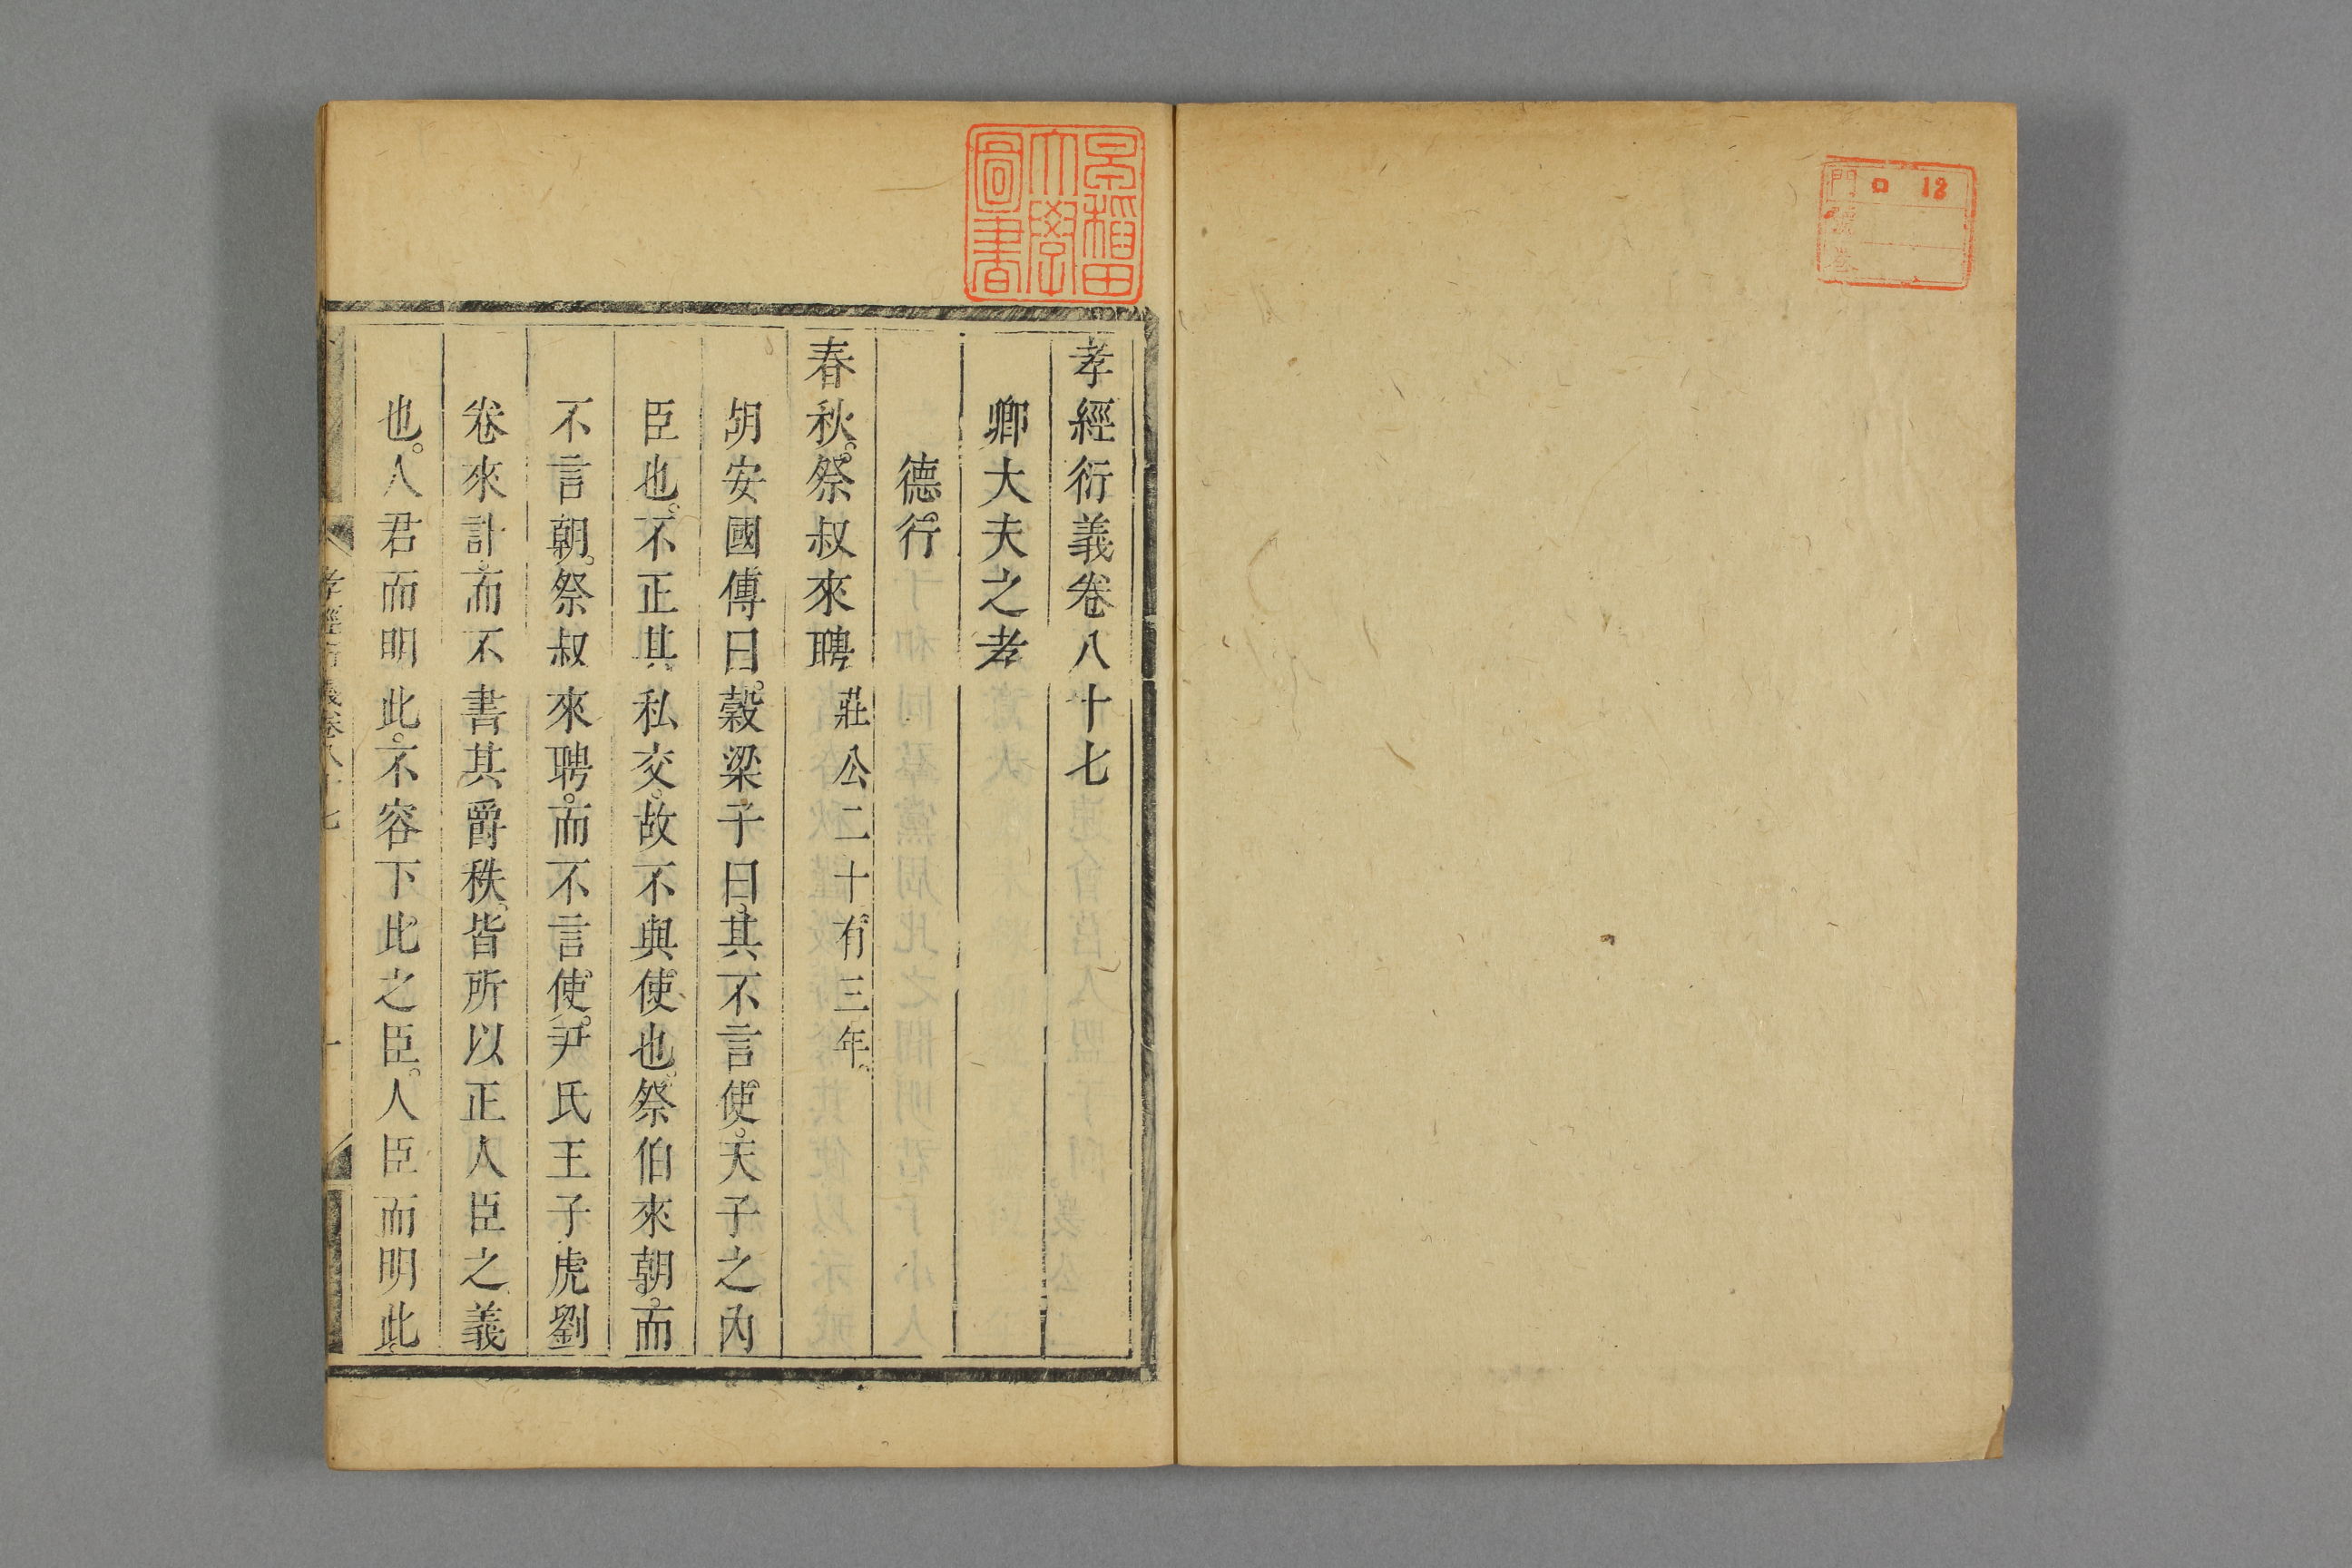 門 ロ 12
號
卷
早稻田
大學
圖書
孝經衍義卷八十七
卿大夫之孝
德行
春秋。祭叔來聘 莊公二十有三年。
胡安國傳曰。穀梁子曰。其不言使。天子之內
臣也。不正其私交。故不與使也。祭伯來朝。而
不言朝。祭叔來聘。而不言使。尹氏王子虎劉
卷來訃。而不書其爵秩。皆所以正人臣之義
也。人君而明此。不容下比之臣。人臣而明此。
孝經衍義卷八十七 一